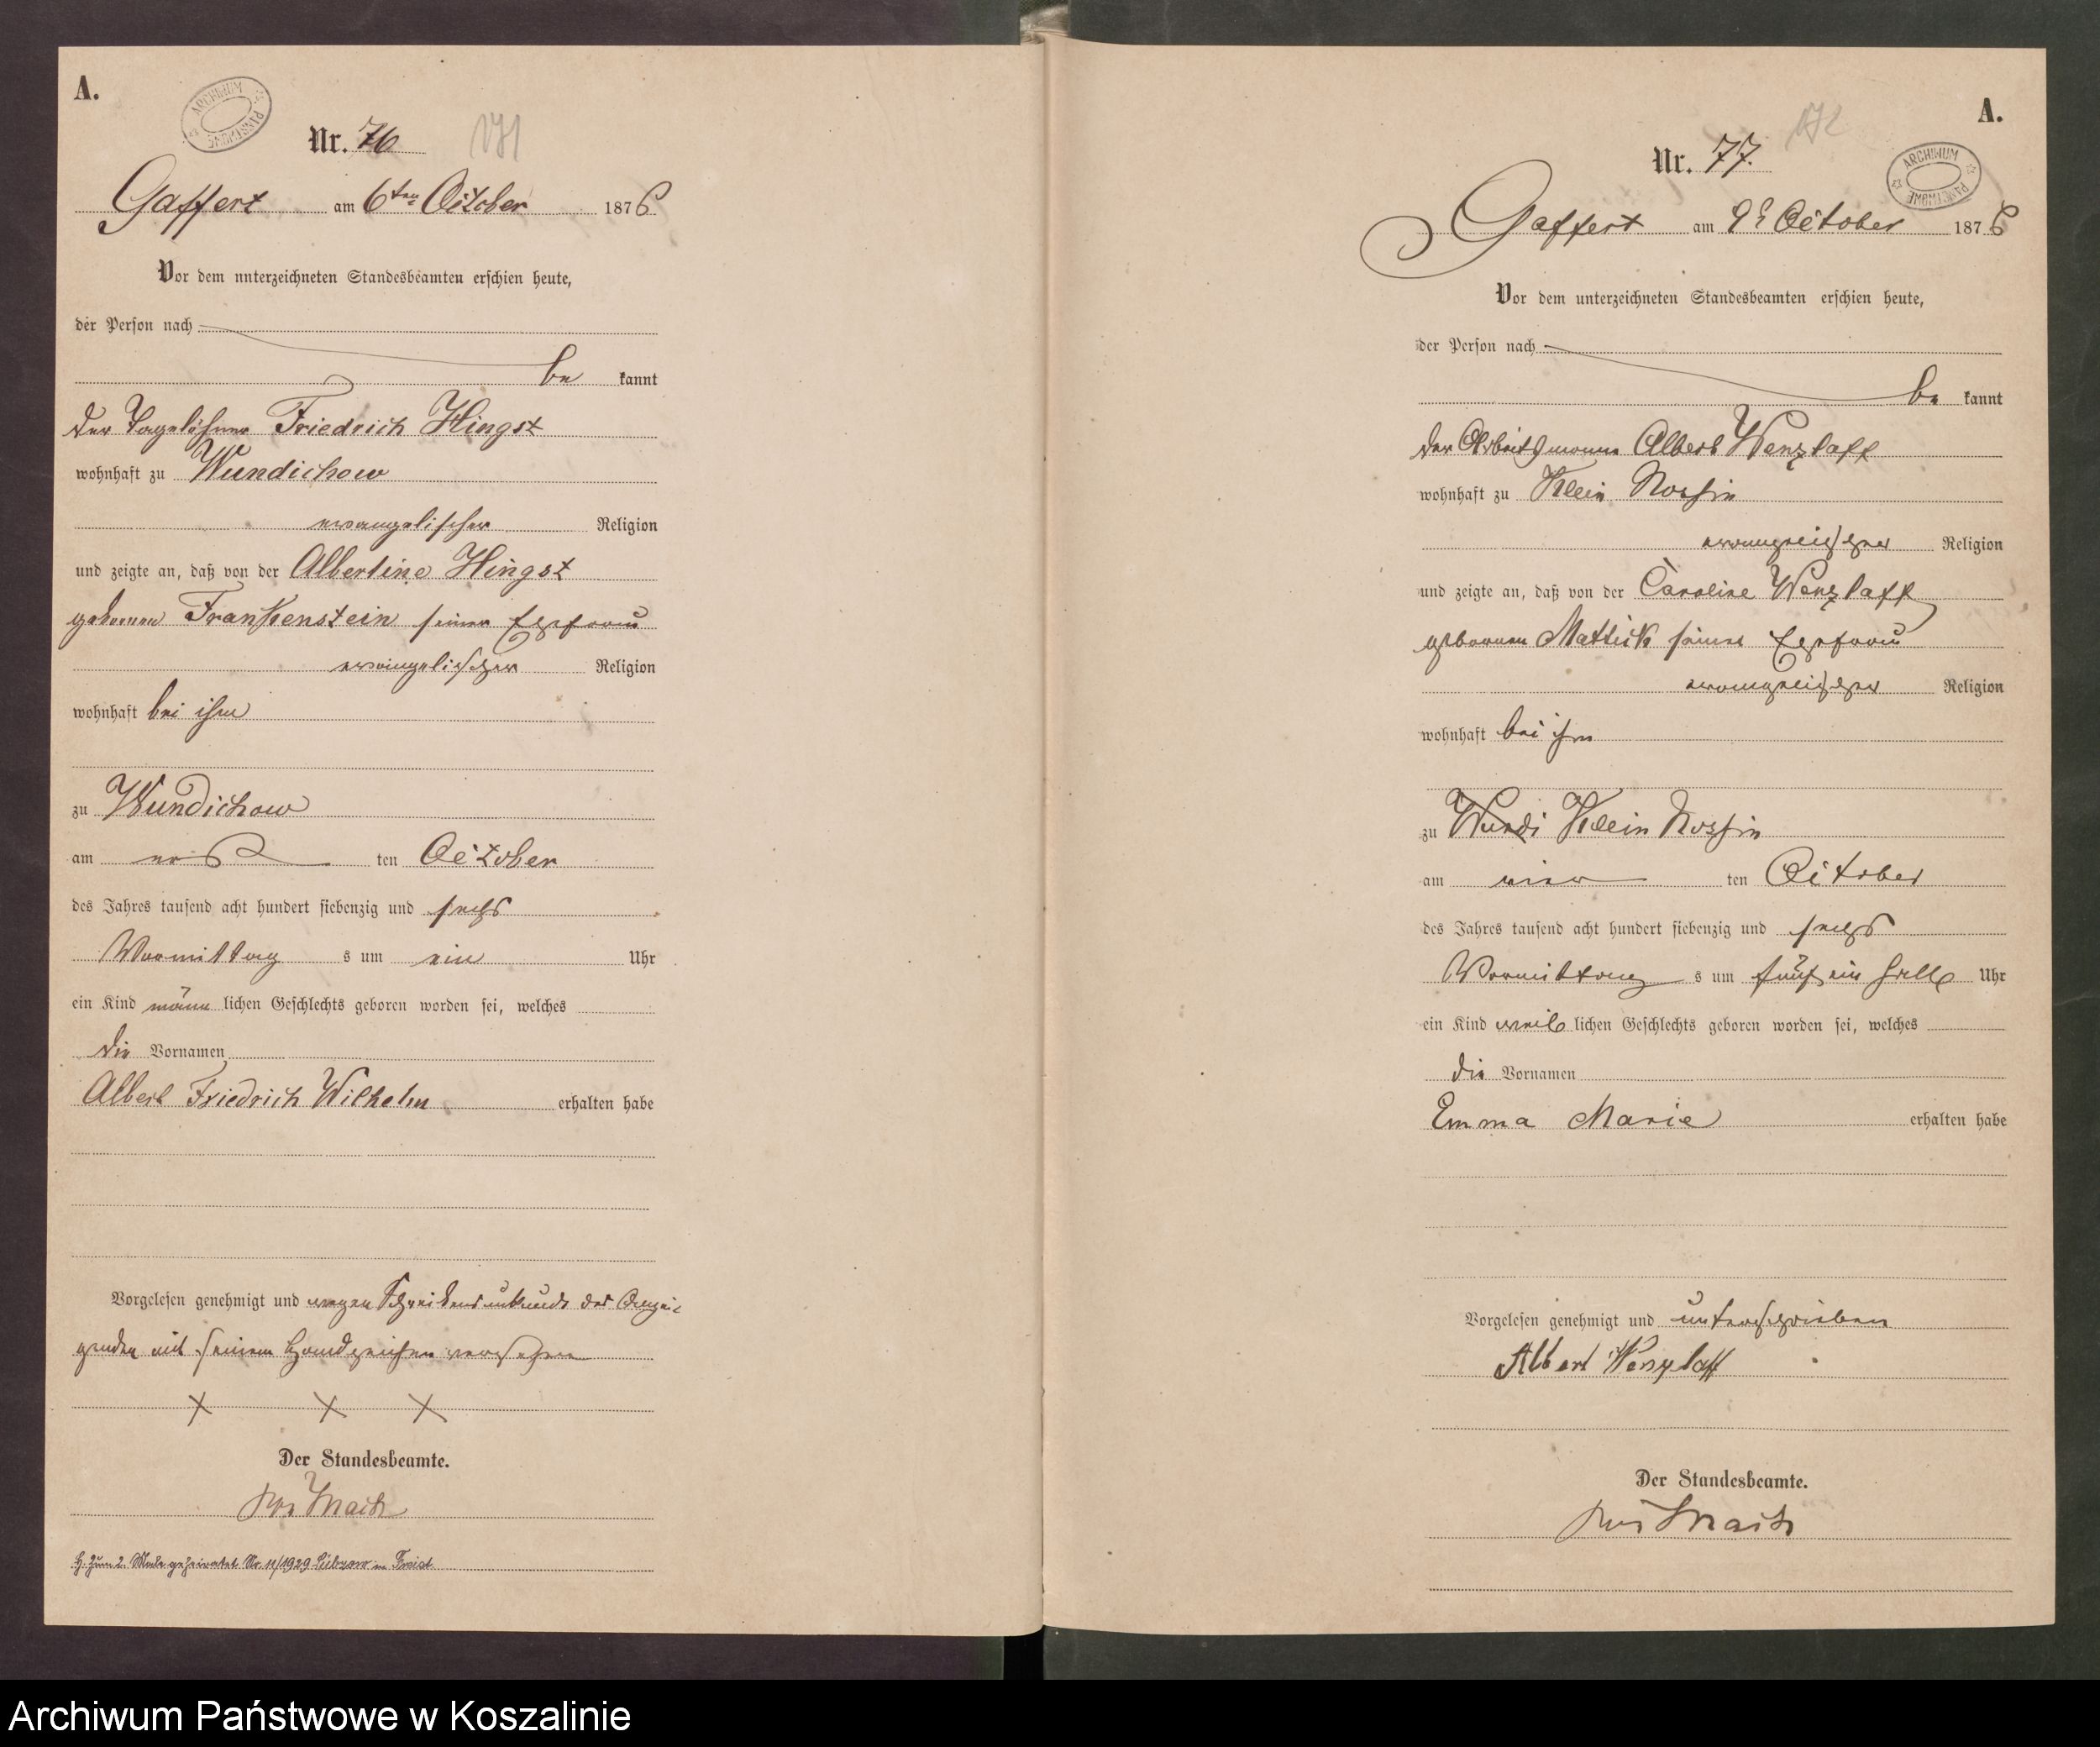 A.
ARCHIWUM PAŃSTWOWE
Nr. 76
171
Gaffert am 6ten October 1876
Vor dem unterzeichneten Standesbeamten erschien heute,
der Person nach
be kannt
der Tagelöhner Friedrich Hingst
wohnhaft zu Wundichow
evangelischer Religion
und zeigte an, daß von der Albertine Hingst
geborenen Frankenstein seiner Ehefrau
evangelischer Religion
wohnhaft bei ihm
zu Wundichow
am ten October
des Jahres tausend acht hundert siebenzig und sechs
Vormittag s um ein Uhr
ein Kind männ lichen Geschlechts geboren worden sei, welches
die Vornamen
Albert Friedrich Wilhelm erhalten habe
Vorgelesen genehmigt und wegen Schreibensunkunde des Anzei-
genden mit seinem Handzeichen versehen
X X X
Der Standesbeamte.
H. zum 2. Male geheiratet Nr. 11/1929 Lübzow
A.
172
Nr. 77.
ARCHIWUM PAŃSTWOWE
Gaffert am 9t October 1876
Vor dem unterzeichneten Standesbeamten erschien heute,
der Person nach
be kannt
der Arbeitsmann Albert Wenzlaff
wohnhaft zu Klein Nossin
evangelischer Religion
und zeigte an, daß von der Caroline Wenzlaff
geborenen Mattick seiner Ehefrau
evangelischer Religion
wohnhaft bei ihm
zu Wundi Klein Nossin
am vier ten October
des Jahres tausend acht hundert siebenzig und sechs
Vormittag s um fünf ein halb Uhr
ein Kind weib lichen Geschlechts geboren worden sei, welches
die Vornamen
Emma Marie erhalten habe
Vorgelesen genehmigt und unterschrieben
Albert Wenzlaff
Der Standesbeamte.
Archiwum Państwowe w Koszalinie